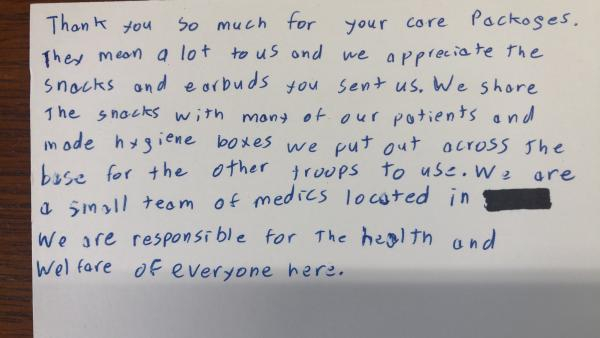 Thank you so much for your care Packages.
They mean a lot to us and we appreciate the
snacks and earbuds you sent us. We share
The snacks with many of our patients and
made hygiene boxes we put out across The
base for the other troops to use. We are
a small team of medics located in
We are responsible for The health and
Welfare of everyone here.